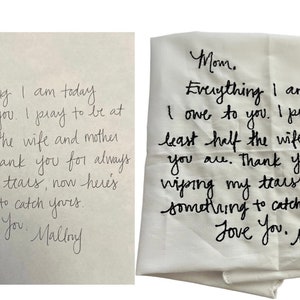 g I am today
you. I pray to be at
the wife and mother
hank you for always
tears, now here's
to catch yours.
You.
Mallory
Mom,
Everything I am
I owe to you. I p
least half the wife
you are. Thank y
wiping my tears
something to catch
Love You.